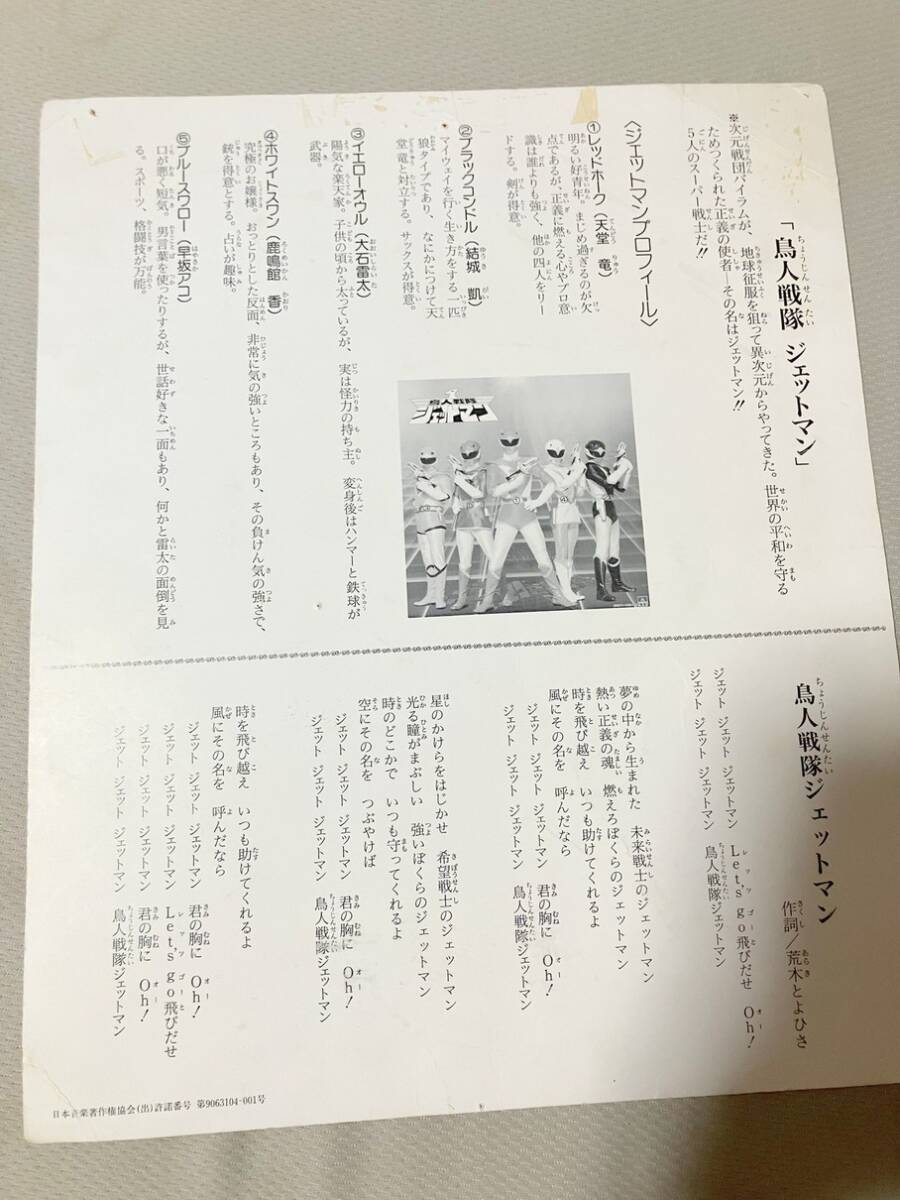 「鳥人戦隊 ジェットマン」
※次元戦団バイラムが、地球征服を狙って異次元からやってきた。世界の平和を守る
ためつくられた正義の使者―その名はジェットマン!!
5人のスーパー戦士だ!!
〈ジェットマンプロフィール〉
①レッドホーク(天堂 竜)
明るい好青年。まじめ過ぎるのが欠
点であるが、正義に燃える心やプロ意
識は誰よりも強く、他の四人をリー
ドする。剣が得意。
②ブラックコンドル(結城 凱)
マイウェイを行く生き方をする一匹
狼タイプであり、なにかにつけて天
堂竜と対立する。サックスが得意。
③イエローオウル(大石雷太)
陽気な楽天家。子供の頃から太っているが、実は怪力の持ち主。変身後はハンマーと鉄球が
武器。
④ホワイトスワン(鹿鳴館 香)
究極のお嬢様。おっとりとした反面、非常に気の強いところもあり、その負けん気の強さで、
銃を得意とする。占いが趣味。
⑤ブルースワロー(早坂アコ)
口が悪く短気。男言葉を使ったりするが、世話好きな一面もあり、何かと雷太の面倒を見
る。スポーツ、格闘技が万能。
鳥人戦隊
ジェットマン
鳥人戦隊ジェットマン
作詞/荒木とよひさ
ジェット ジェット ジェットマン Let's go 飛びだせ Oh!
ジェット ジェット ジェットマン 鳥人戦隊ジェットマン
夢の中から生まれた 未来戦士のジェットマン
熱い正義の魂 燃えろぼくらのジェットマン
時を飛び越え いつも助けてくれるよ
風にその名を 呼んだなら
ジェット ジェット ジェットマン 君の胸に Oh!
ジェット ジェット ジェットマン 鳥人戦隊ジェットマン
星のかけらをはじかせ 希望戦士のジェットマン
光る瞳がまぶしい 強いぼくらのジェットマン
時のどこかで いつも守ってくれるよ
空にその名を つぶやけば
ジェット ジェット ジェットマン 君の胸に Oh!
ジェット ジェット ジェットマン 鳥人戦隊ジェットマン
時を飛び越え いつも助けてくれるよ
風にその名を 呼んだなら
ジェット ジェット ジェットマン 君の胸に Oh!
ジェット ジェット ジェットマン Let's go 飛びだせ
ジェット ジェット ジェットマン 君の胸に Oh!
ジェット ジェット ジェットマン 鳥人戦隊ジェットマン
日本音楽著作権協会(出)許諾番号 第9063104-001号